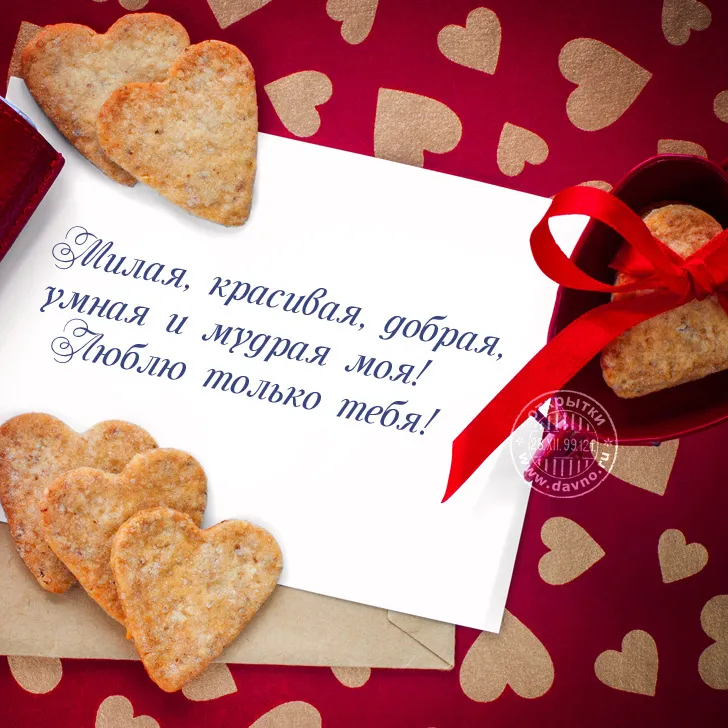 Милая, красивая, добрая,
умная и мудрая моя!
Люблю только тебя!
открытки
28.XII.99.12
www.davno.ru